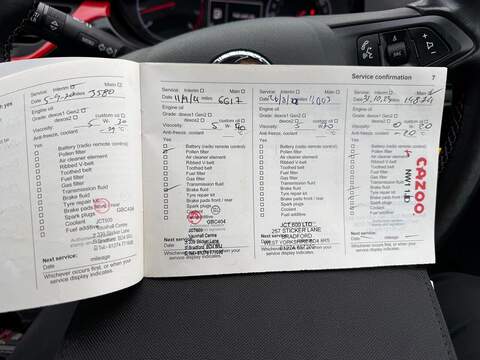 Service confirmation 7
th yes
Service: Interim Main
Date 3580
mileage
Engine oil
Grade: dexos1 Gen2
custom oil
Viscosity: 5 W 30
Anti-freeze, coolant
Battery (radio remote control)
Pollen filter
Air cleaner element
Ribbed V-belt
Toothed belt
Fuel filter
Gas filter
Transmission fluid
Brake fluid
Tyre repair kit
Brake pads front / rear
Spark plugs
Coolant
Fuel additive
GBC404
JCT600
Vauxhall Centre
Next service:
mileage
Whichever occurs first, or when your
service display indicates.
Service: Interim Main
Date mileage 6617
Engine oil
Grade: dexos1 Gen2
custom oil
Viscosity: 5 W
Anti-freeze, coolant
Battery (radio remote control)
Pollen filter
Air cleaner element
Ribbed V-belt
Toothed belt
Fuel filter
Gas filter
Transmission fluid
Brake fluid
Tyre repair kit
Brake pads front / rear
Spark plugs
Coolant
Fuel additive
GBC404
JCT600
Vauxhall Centre
Next service:
Date
mileage
Whichever occurs first, or when your
service display indicates.
Service: Interim Main
Date mileage
Engine oil
Grade: dexos1 Gen2
custom oil
Viscosity: 5 W
Anti-freeze, coolant
Battery (radio remote control)
Pollen filter
Air cleaner element
Ribbed V-belt
Toothed belt
Fuel filter
Gas filter
Transmission fluid
Brake fluid
Tyre repair kit
Brake pads front / rear
Spark plugs
Coolant
Fuel additive
JCT 600 LTD
257 STICKER LANE
BRADFORD
WEST YORKSHIRE BD4
Next service:
Date
mileage
Whichever occurs first, or when your
service display indicates.
Service: Interim Main
Date 31.10.23 mileage
Engine oil
Grade: dexos1 Gen2
custom oil
Viscosity: 0 W 20
Anti-freeze, coolant
Battery (radio remote control)
Pollen filter
Air cleaner element
Ribbed V-belt
Toothed belt
Fuel filter
Gas filter
Transmission fluid
Brake fluid
Tyre repair kit
Brake pads front / rear
Spark plugs
Coolant
Fuel additive
CAZOO
NW1
Next service:
Date mileage
Whichever occurs first, or when your
service display indicates.